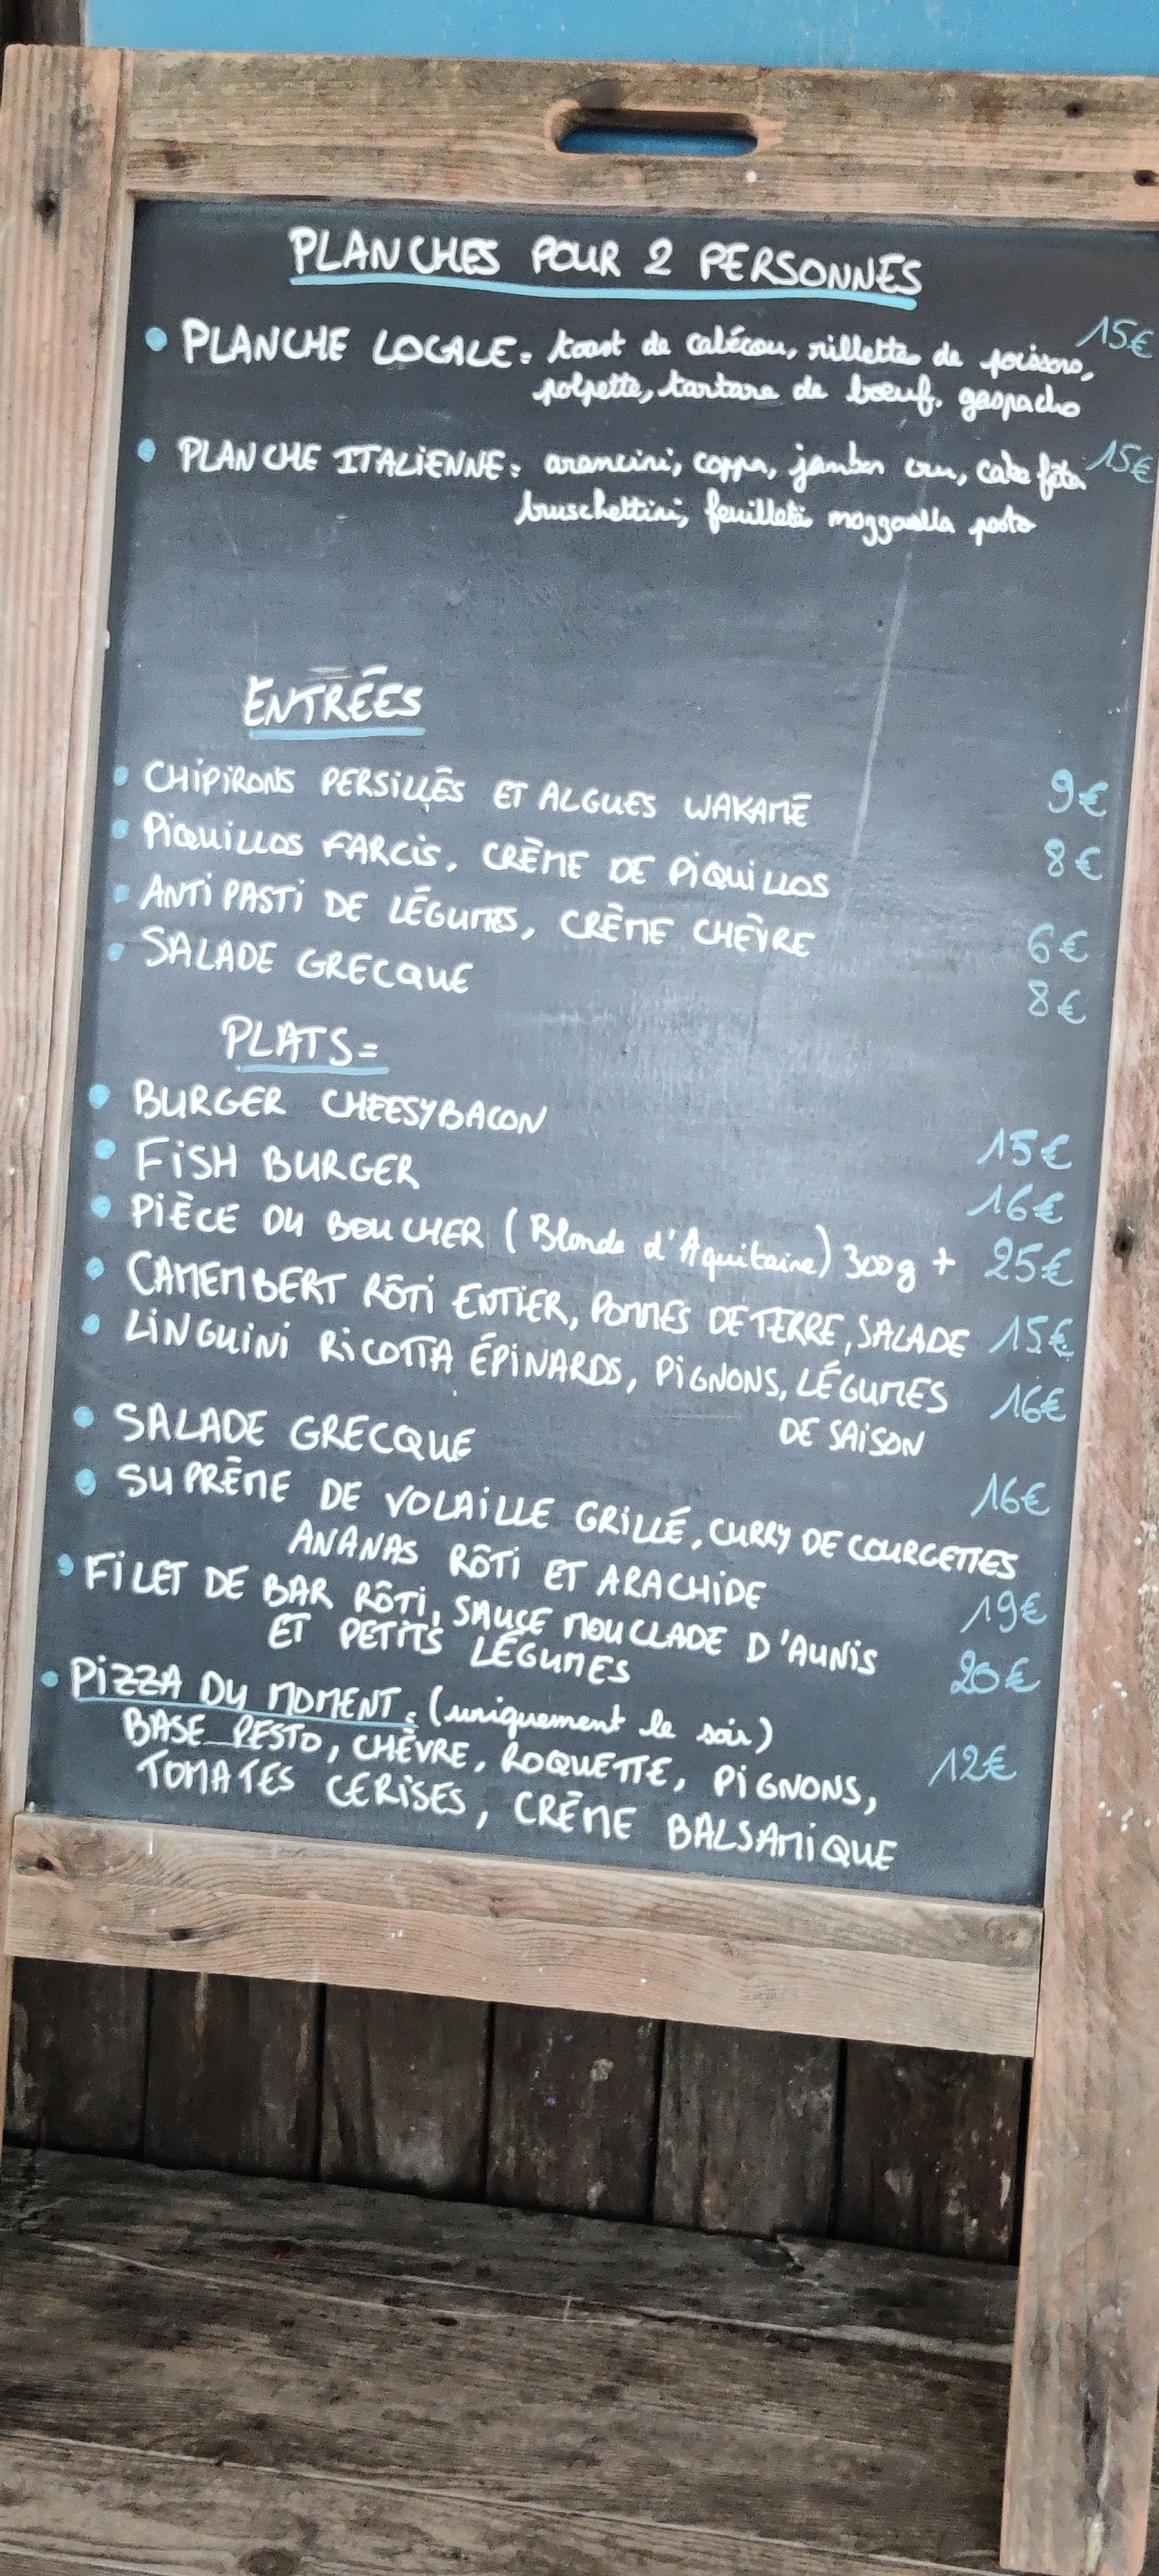 PLANCHES POUR 2 PERSONNES
• PLANCHE LOCALE = toast de cabécou, rillettes de poissons, 15€
polpette, tartare de bœuf. gaspacho
• PLANCHE ITALIENNE : arancini, coppa, jambon cru, cake féta 15€
bruschettini, feuilletés mozzarella pesto
ENTRÉES
• CHIPIRONS PERSILLÉS ET ALGUES WAKAMÉ 9€
• PIQUILLOS FARCIS, CRÈME DE PIQUILLOS 8€
• ANTIPASTI DE LÉGUMES, CRÈME CHÈVRE 6€
• SALADE GRECQUE 8€
PLATS =
• BURGER CHEESYBACON 15€
• FISH BURGER 16€
• PIÈCE DU BOUCHER (Blonde d'Aquitaine) 300g + 25€
• CAMEMBERT RÔTI ENTIER, POMMES DE TERRE, SALADE 15€
• LINGUINI RICOTTA ÉPINARDS, PIGNONS, LÉGUMES 16€
DE SAISON
• SALADE GRECQUE 16€
• SUPRÊME DE VOLAILLE GRILLÉ, CURRY DE COURGETTES
ANANAS RÔTI ET ARACHIDE 19€
• FILET DE BAR RÔTI, SAUCE MOUCLADE D'AUNIS
ET PETITS LÉGUMES 20€
• PIZZA DU MOMENT : (uniquement le soir)
BASE PESTO, CHÈVRE, ROQUETTE, PIGNONS, 12€
TOMATES CERISES, CRÈME BALSAMIQUE